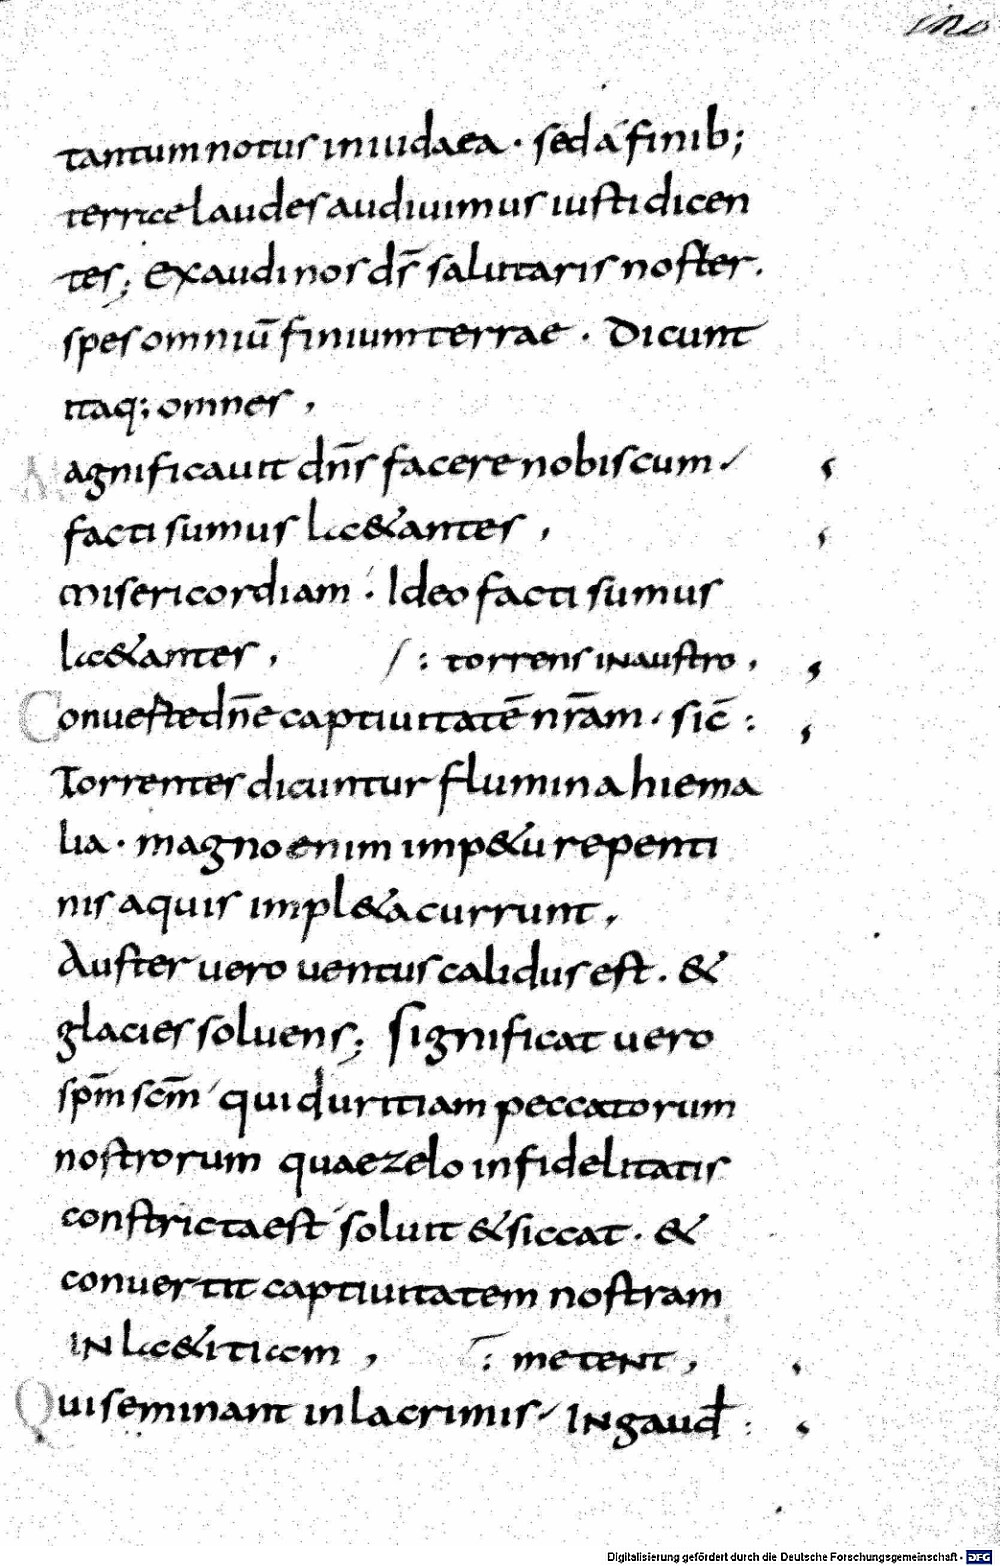 tantum notus in iudaea · sed á finib;
terrae laudes audiuimus iusti dicen
tes; Exaudi nos d̄s salutaris noster.
spes omniū finium terrae · Dicunt
itaq; omnes,
Magnificauit dn̄s facere nobiscum
facti sumus laetantes,
misericordiam · Ideo facti sumus
laetantes, : torrens in austro,
Conuerte dn̄e captiuitatē nr̄am · sic̄ :
Torrentes dicuntur flumina hiema
lia · magno enim impetu repenti
nis aquis impleta currunt,
Auster uero uentus calidus est · &
glacies soluens; Significat uero
sp̄m sc̄m qui duritiam peccatorum
nostrorum quae zelo infidelitatis
constricta est soluit & siccat · &
conuertit captiuitatem nostram
in laetitiam, : metent,
Qui seminant in lacrimis In gaud :
Digitalisierung gefördert durch die Deutsche Forschungsgemeinschaft - DFG